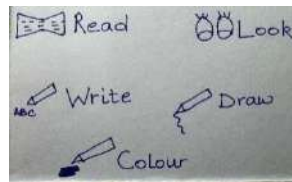 Read Look
ABC Write Draw
Colour